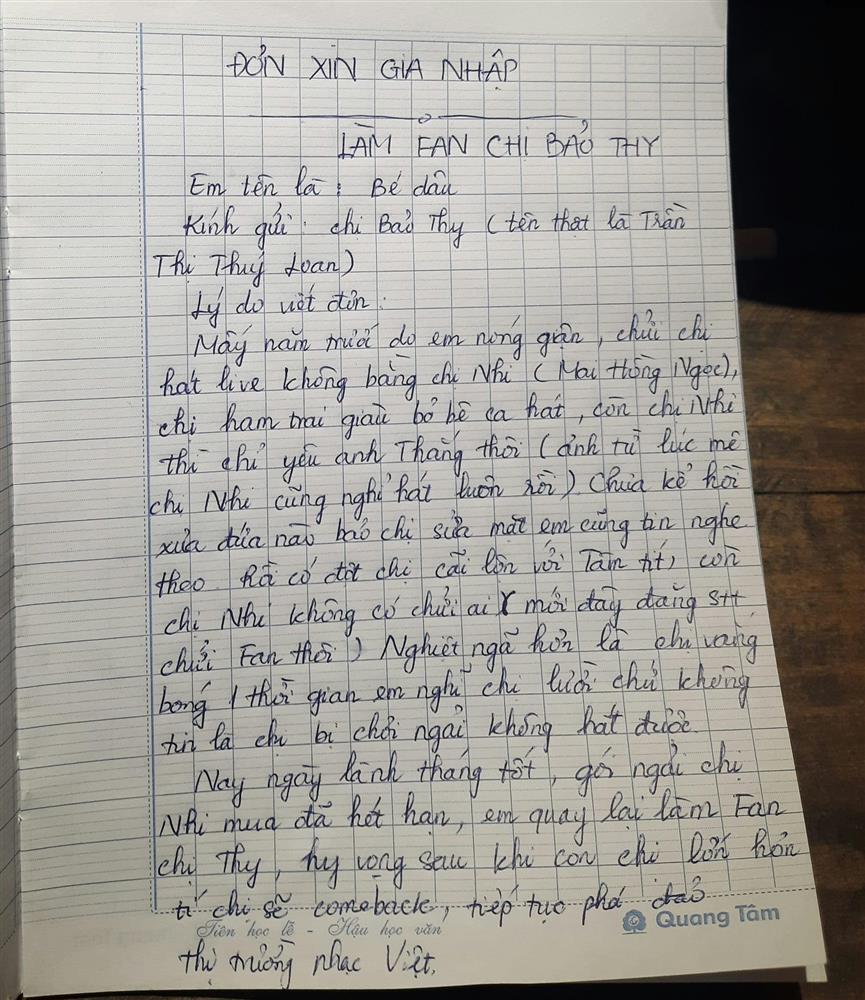 ĐƠN XIN GIA NHẬP
LÀM FAN CHỊ BẢO THY
Em tên là: Bé dâu
Kính gửi: chị Bảo Thy (tên thật là Trần
Thị Thuý Loan)
Lý do viết đơn:
Mấy năm trước do em nóng giận, chửi chị
hát live không bằng chị Nhi (Mai Hồng Ngọc),
chị ham trai giàu bỏ bê ca hát, còn chị Nhi
thì chỉ yêu anh Thắng thôi (ảnh từ lúc mê
chị Nhi cũng nghỉ hát luôn rồi). Chưa kể hồi
xưa đứa nào bảo chị sửa mặt em cũng tin nghe
theo. Rồi có đợt chị cãi lộn với Tâm tít, còn
chị Nhi không có chửi ai (mới đây đăng stt
chửi Fan thôi) Nghiệt ngã hơn là chị vắng
bóng 1 thời gian em nghĩ chị lười chứ không
tin là chị bị chơi ngải không hát được.
Nay ngày lành tháng tốt, gói ngải chị
Nhi mua đã hết hạn, em quay lại làm Fan
chị Thy, hy vọng sau khi con chị lớn hơn
tí chị sẽ comeback, tiếp tục phá đảo
thị trường nhạc Việt.
Tiên học lễ - Hậu học văn
Quang Tâm